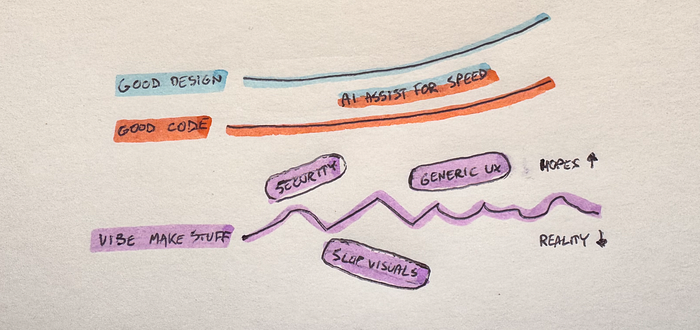 GOOD DESIGN
AI ASSIST FOR SPEED
GOOD CODE
SECURITY
GENERIC UX
HOPES ↑
VIBE MAKE STUFF
REALITY ↓
SLOP VISUALS